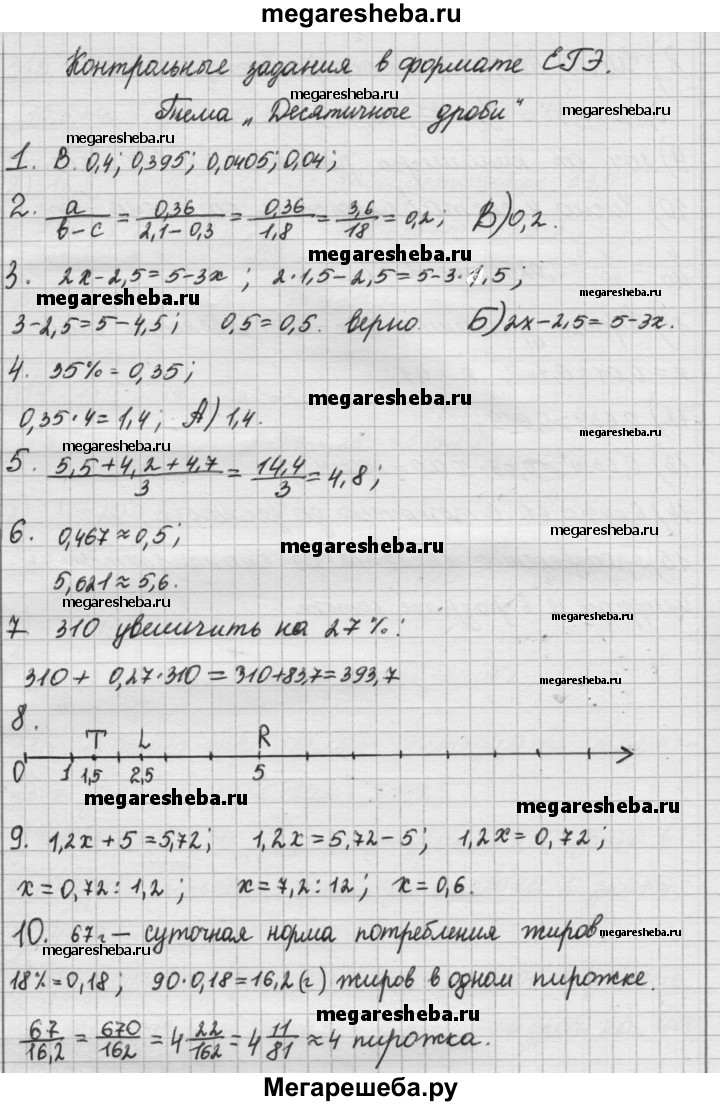 megaresheba.ru
Контрольные задания в формате ЕГЭ.
megaresheba.ru
Тема „Десятичные дроби“
megaresheba.ru
megaresheba.ru
1. В. 0,4; 0,395; 0,0405; 0,04;
2. a/(b-c) = 0,36/(2,1-0,3) = 0,36/1,8 = 3,6/18 = 0,2; В) 0,2.
megaresheba.ru
3. 2x-2,5=5-3x; 2·1,5-2,5=5-3·1,5;
megaresheba.ru
megaresheba.ru
3-2,5=5-4,5; 0,5=0,5. верно. Б) 2x-2,5=5-3x.
4. 35%=0,35;
megaresheba.ru
0,35·4=1,4; А) 1,4.
megaresheba.ru
megaresheba.ru
5. (5,5+4,2+4,7)/3 = 14,4/3 = 4,8;
6. 0,467≈0,5;
megaresheba.ru
megaresheba.ru
5,621≈5,6.
megaresheba.ru
megaresheba.ru
7 310 увеличить на 27%:
310+ 0,27·310=310+83,7=393,7
megaresheba.ru
8.
T L R
0 1 1,5 2,5 5
megaresheba.ru
megaresheba.ru
9. 1,2x+5=5,72; 1,2x=5,72-5; 1,2x=0,72;
x=0,72:1,2; x=7,2:12; x=0,6.
10. 67г — суточная норма потребления жиров
megaresheba.ru
megaresheba.ru
18%=0,18; 90·0,18=16,2(г) жиров в одном пирожке.
megaresheba.ru
67/16,2 = 670/162 = 4 22/162 = 4 11/81 ≈ 4 пирожка.
megaresheba.ru
Мегарешеба.ру